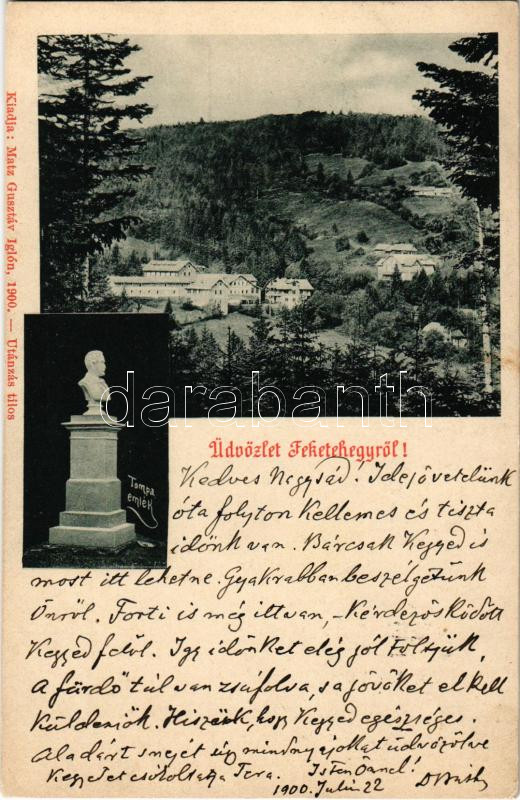 Kiadja: Matz Gusztáv Iglón, 1900. — Utánzás tilos
darabanth
Tompa
emlék
Üdvözlet Feketehegyről!
Kedves Nagysád! Idejövetelünk
óta folyton kellemes és tiszta
időnk van. Bárcsak Kegyed is
most itt lehetne. Gyakrabban beszélgetünk
Önről. Forti is még itt van, – kérdezősködött
Kegyed felől. Igy időnket elég jól töltjük,
a fürdő túl van zsúfolva, s a jövőket el kell
küldeniök. Hiszük, hogy Kegyed egészséges.
Aladárt s nejét úgy mindnyájokat üdvözölve
Kegyedet csókoltatja Tera. Isten Önnel!
1900. Juli 22